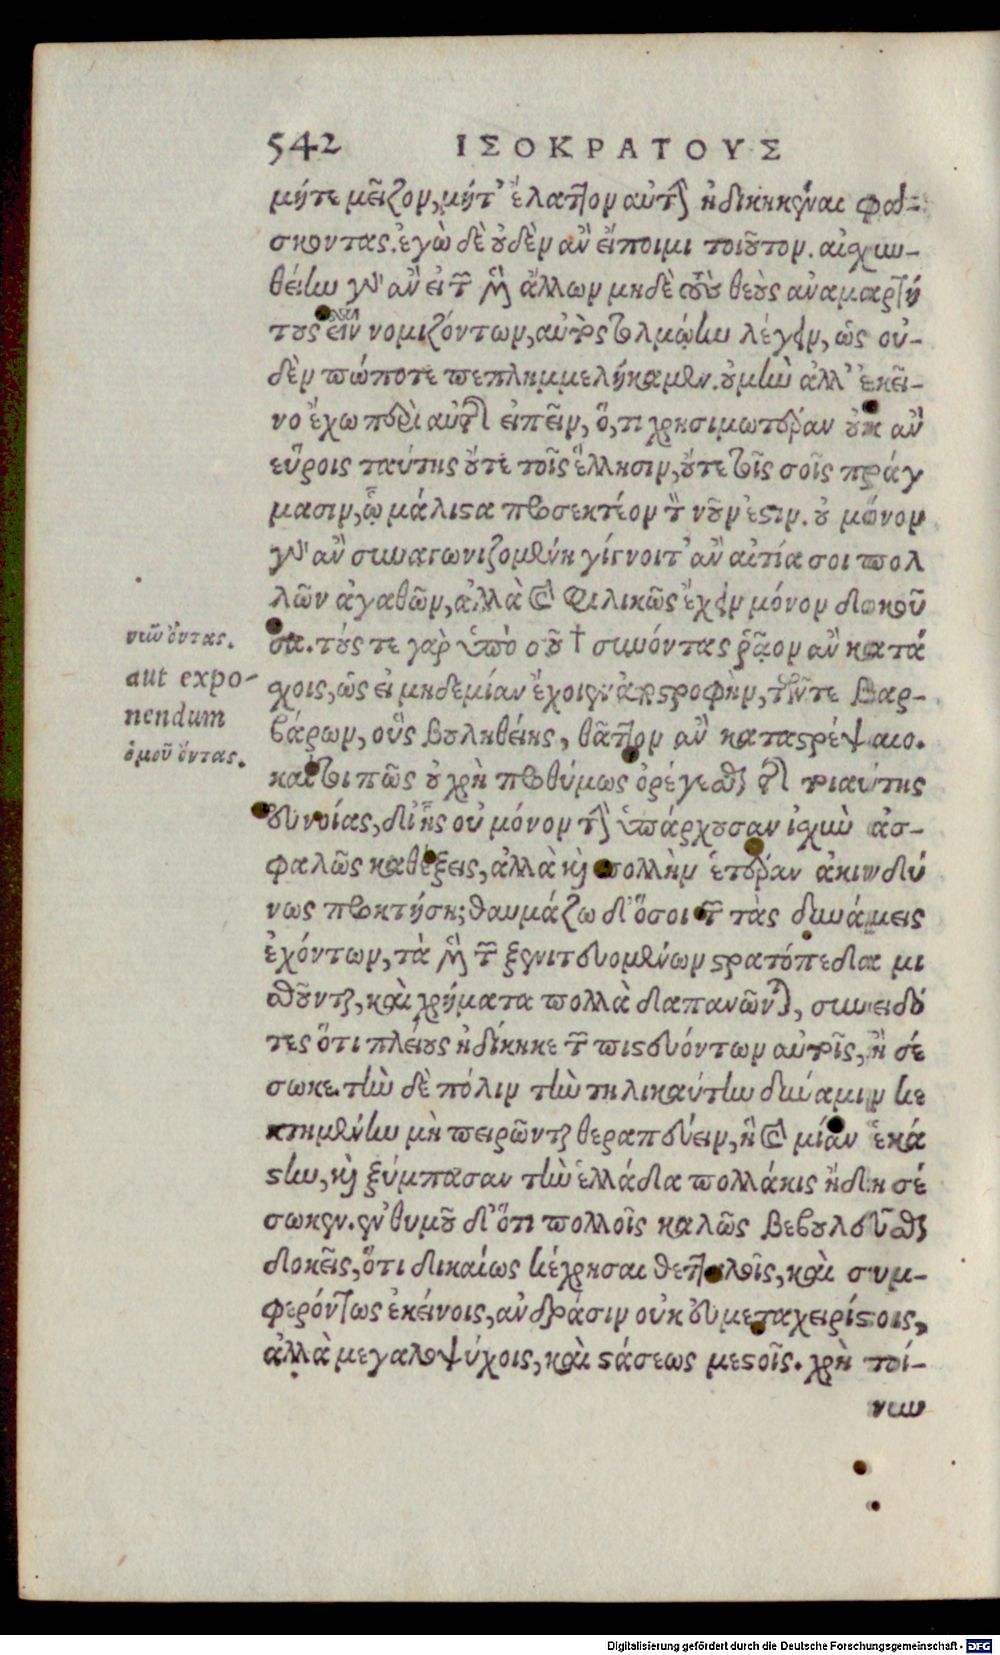 542 ΙΣΟΚΡΑΤΟΥΣ
μήτε μεῖζον, μήτ' ἔλαττον αὐτὴν ἠδικηκέναι φά-
σκοντας. ἐγὼ δὲ οὐδὲν ἂν εἴποιμι τοιοῦτον. αἰσχυν-
θείην γὰρ ἂν εἰ τῶν ἄλλων μηδὲ τοὺς θεοὺς ἀναμαρτή
τους εἶναι νομιζόντων, αὐτὸς τολμῴην λέγειν, ὡς οὐ-
δὲν πώποτε πεπλημμελήκαμεν. οὐ μὴν ἀλλ' ἐκεῖ-
νο ἔχω περὶ αὐτῆς εἰπεῖν, ὅ, τι χρησιμωτέραν οὐκ ἂν
εὕροις ταύτης οὔτε τοῖς ἕλλησιν, οὔτε τοῖς σοῖς πράγ
μασιν, ᾧ μάλιστα προσεκτέον τὸν νοῦν ἐστιν. οὐ μόνον
γὰρ ἂν συναγωνιζομένη γίγνοιτ' ἂν αἰτία σοι πολ
λῶν ἀγαθῶν, ἀλλὰ καὶ φιλικῶς ἔχειν μόνον δοκοῦ
σα. τούς τε γὰρ ὑπὸ σοῦ † συνόντας ῥᾷον ἂν κατά
σχοις, ὡς εἰ μηδεμίαν ἔχοιεν ἀποστροφὴν, τῶν τε βαρ-
βάρων, οὓς βουληθείης, θᾶττον ἂν καταστρέψαιο.
καίτοι πῶς οὐ χρὴ προθύμως ὀρέγεσθαι τῆς τοιαύτης
εὐνοίας, δι' ἧς οὐ μόνον τὴν ὑπάρχουσαν ἰσχὺν ἀσ-
φαλῶς καθέξεις, ἀλλὰ καὶ πολλὴν ἑτέραν ἀκινδύ
νως προσκτήσῃ; θαυμάζω δ' ὅσοι τῶν τὰς δυνάμεις
ἐχόντων, τὰ μὲν τῶν ξενιτευομένων στρατόπεδα μι
σθοῦνται, καὶ χρήματα πολλὰ δαπανῶνται, συνειδό
τες ὅτι πλείους ἠδίκηκε τῶν πιστευόντων αὐτοῖς, ἢ σέ
σωκε. τὴν δὲ πόλιν τὴν τηλικαύτην δύναμιν κε
κτημένην μὴ πειρῶνται θεραπεύειν, ἣ καὶ μίαν ἑκά
στην, καὶ ξύμπασαν τὴν ἑλλάδα πολλάκις ἤδη σέ
σωκεν. ἐνθυμοῦ δ' ὅτι πολλοῖς καλῶς βεβουλεῦσθαι
δοκεῖς, ὅτι δικαίως κέχρησαι θετταλοῖς, καὶ συμ-
φερόντως ἐκείνοις, ἀνδράσιν οὐκ εὐμεταχειρίστοις,
ἀλλὰ μεγαλοψύχοις, καὶ στάσεως μεστοῖς. χρὴ τοί-
νυν
νῦν ὄντας.
aut expo-
nendum
ὁμοῦ ὄντας.
Digitalisierung gefördert durch die Deutsche Forschungsgemeinschaft - DFG